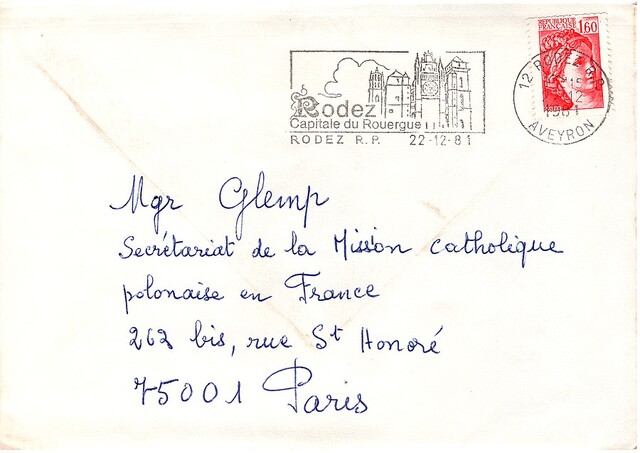 REPUBLIQUE FRANÇAISE 1,60
Rodez
Capitale du Rouergue
RODEZ R.P. 22-12-81
12 RODEZ
1981
AVEYRON
Mgr Glemp
Secrétariat de la Mission catholique
polonaise en France
262 bis, rue St Honoré
75001 Paris